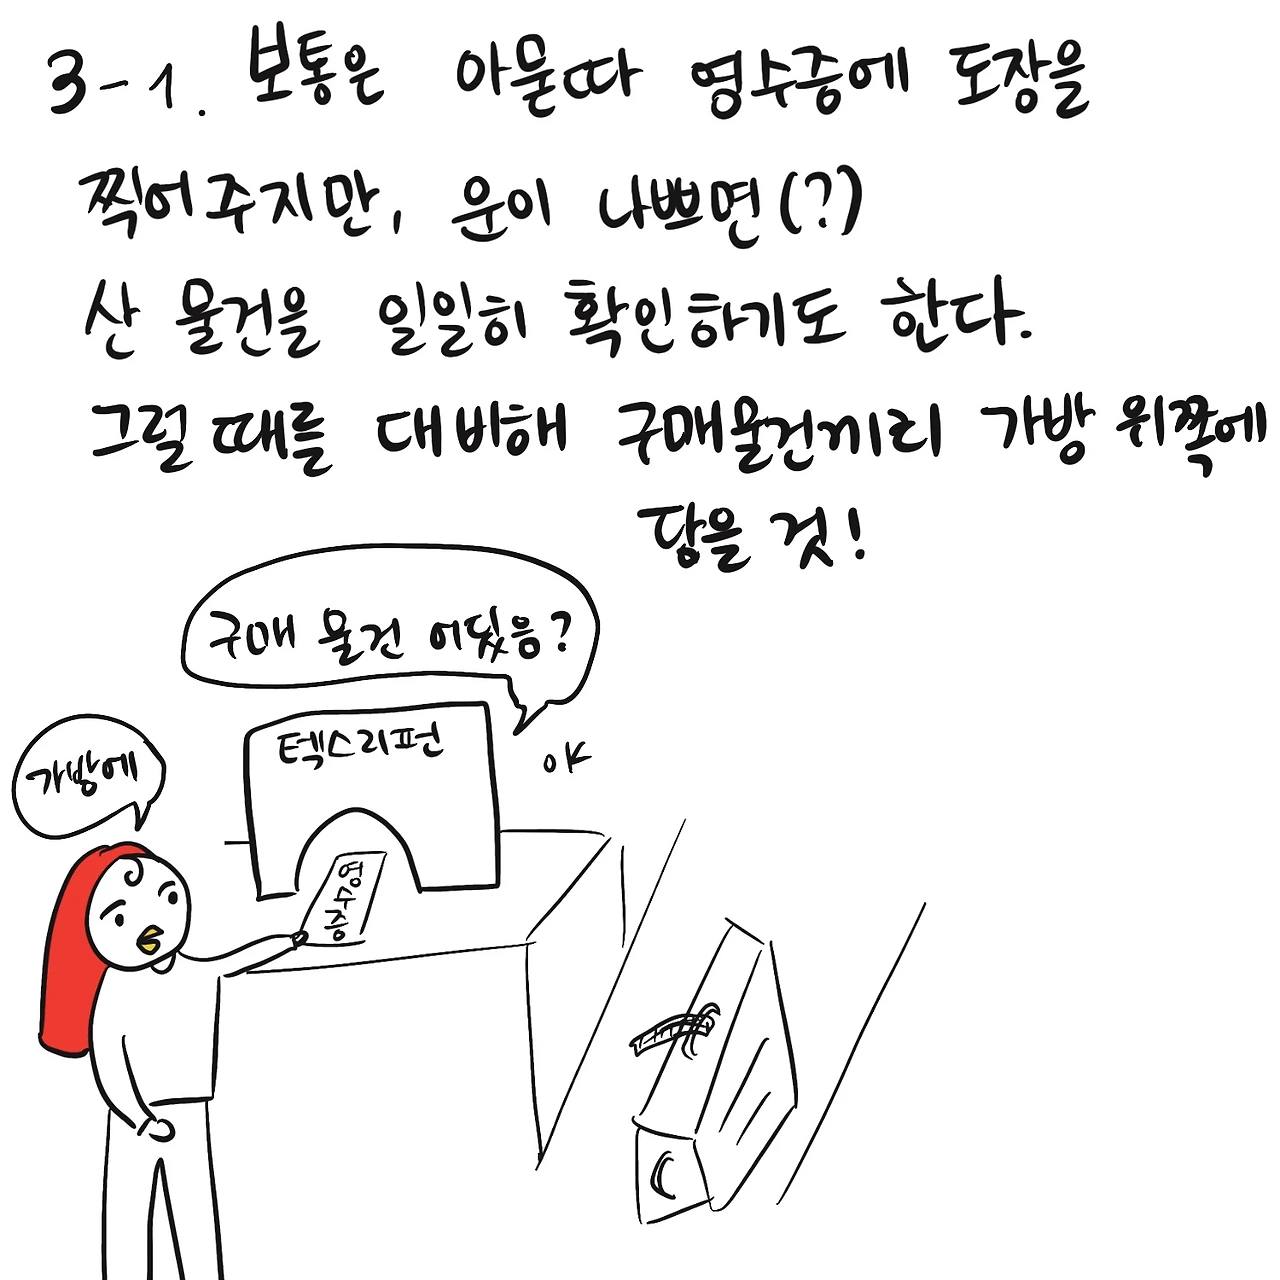 3-1. 보통은 아묻따 영수증에 도장을
찍어주지만, 운이 나쁘면(?)
산 물건을 일일히 확인하기도 한다.
그럴 때를 대비해 구매물건끼리 가방 위쪽에
담을 것!
구매 물건 어딨음?
텍스리펀
OK
가방에
영수증